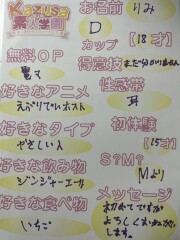 Kazusa
素人学園
お名前 りみ
D カップ 【18才】
無料OP
電マ
得意技
まだ分かりません
好きなアニメ
えぶりでいホスト
性感帯
耳
好きなタイプ
やさしい人
初体験
【15才】
好きな飲み物
ジンジャーエール
S?M?
Mより
好きな食べ物
いちご
メッセージ
ですが
よろしくおねがい
します。